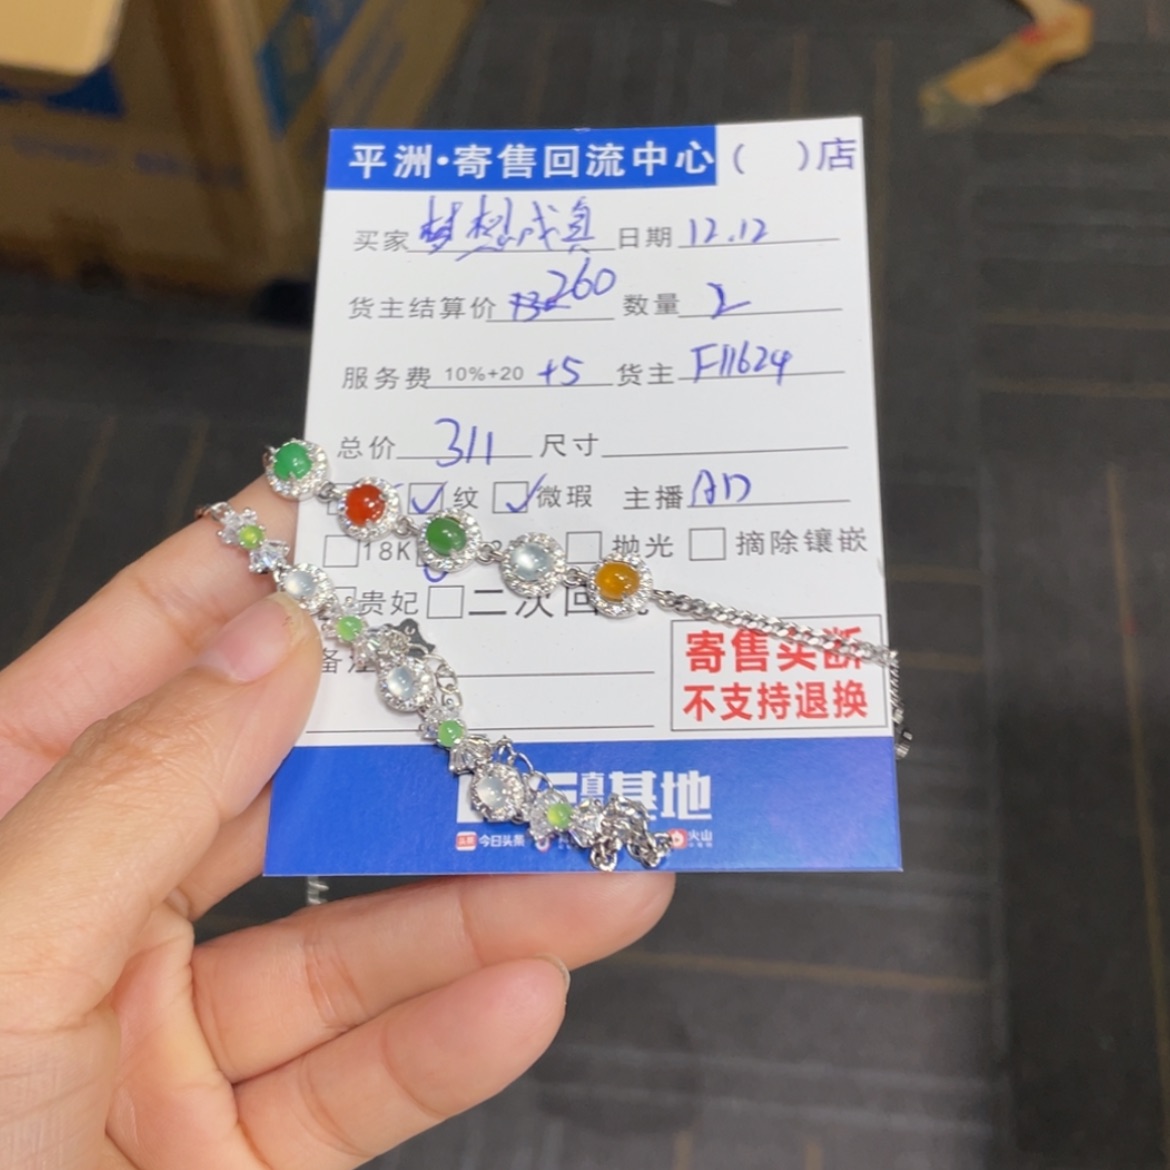 平洲·寄售回流中心 ( )店
买家 梦想成真 日期 12.12
货主结算价 260 数量 2
服务费 10%+20 +5 货主 F11624
总价 311 尺寸
纹 微瑕 主播 AD
18K 抛光 摘除镶嵌
贵妃 二次回
备注
寄售买断
不支持退换
基地
头条 今日头条 火山